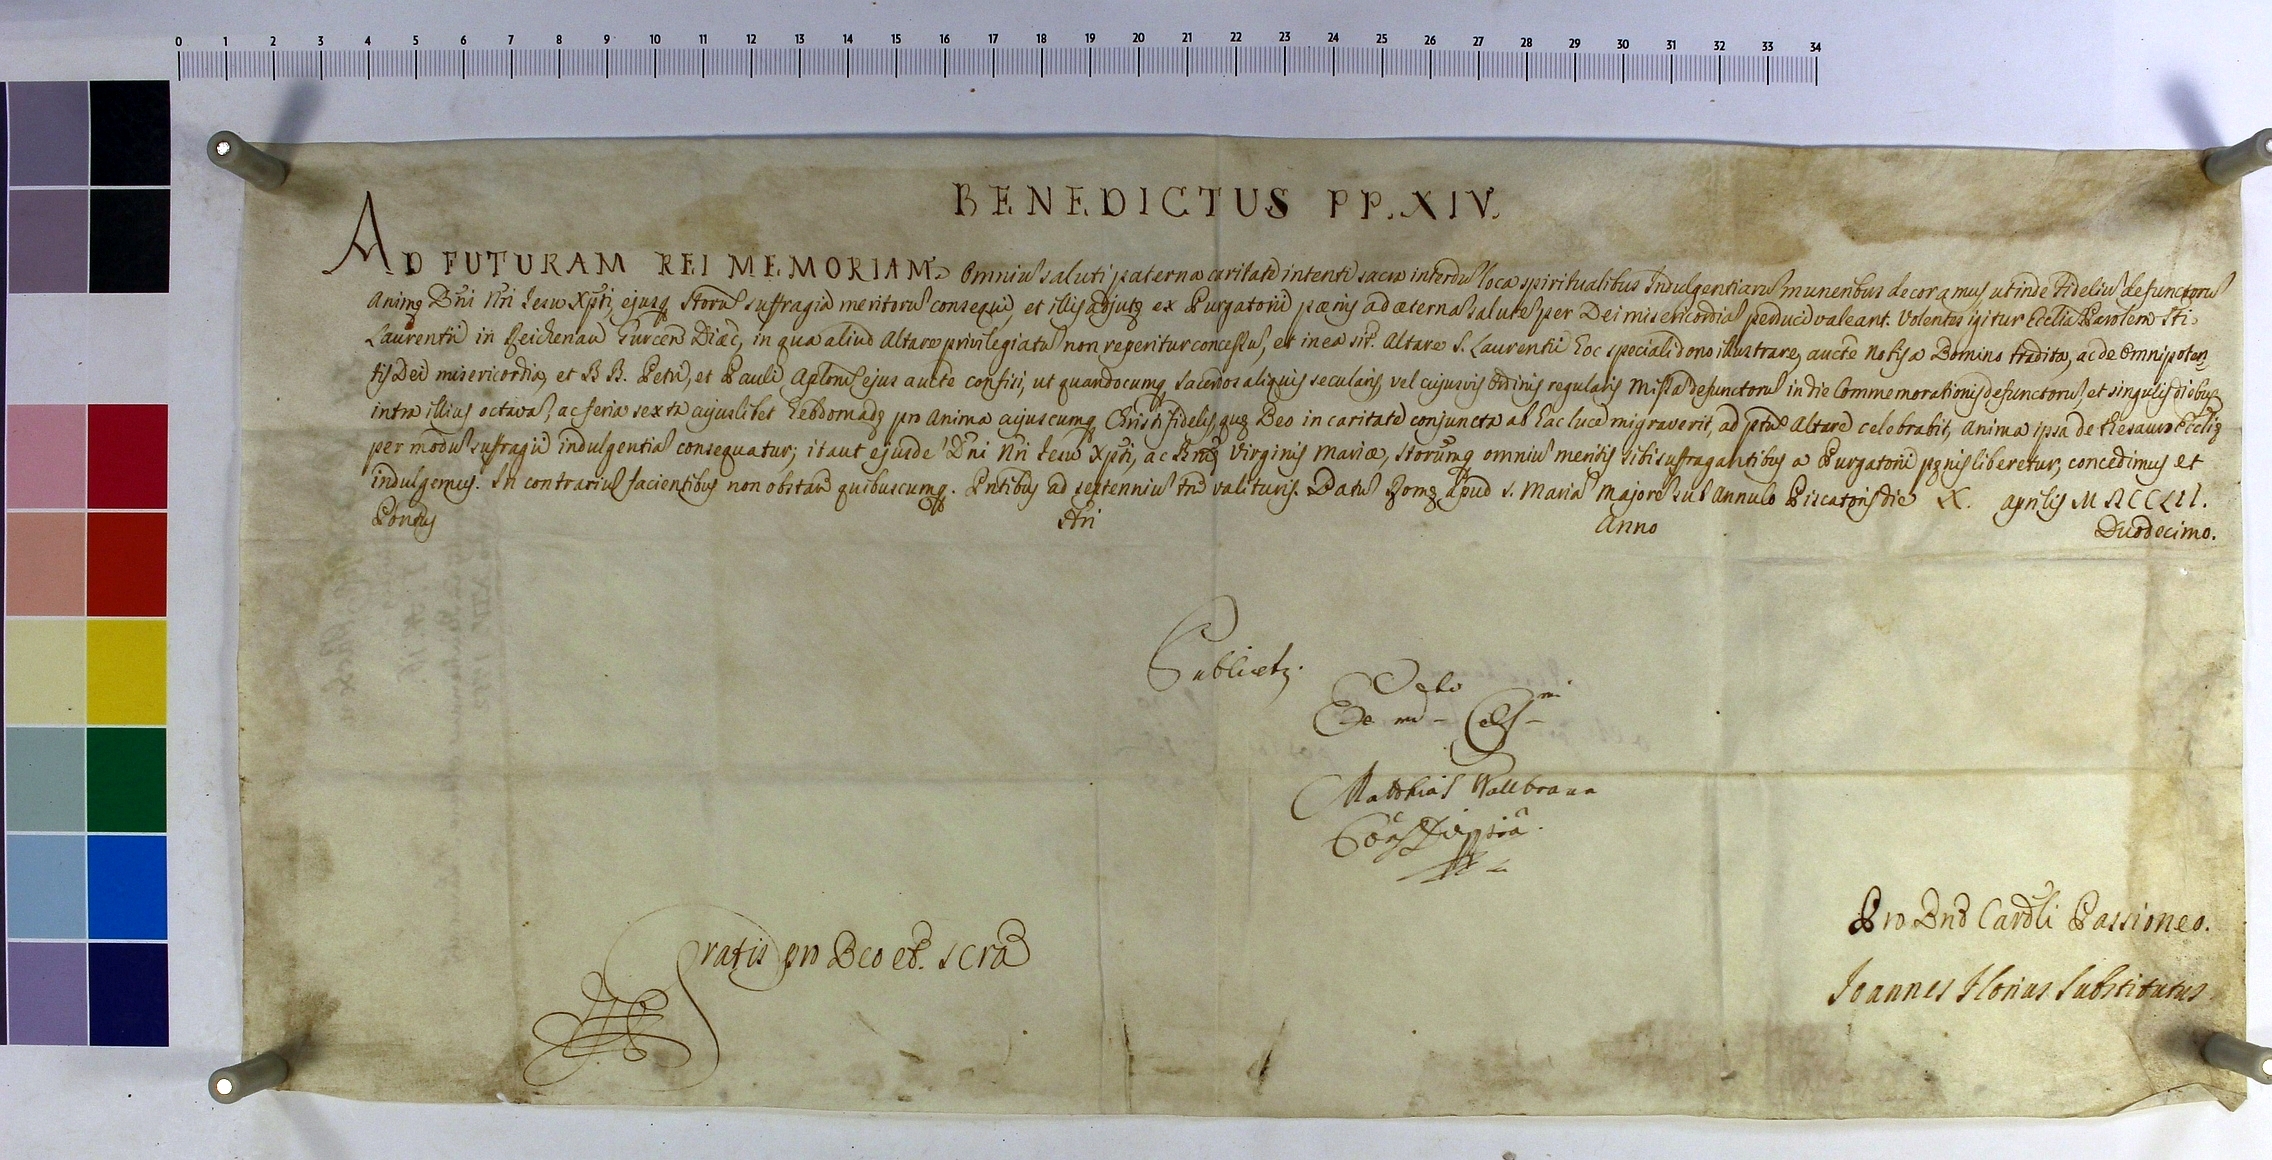 0 1 2 3 4 5 6 7 8 9 10 11 12 13 14 15 16 17 18 19 20 21 22 23 24 25 26 27 28 29 30 31 32 33 34
BENEDICTUS PP. XIV.
AD FUTURAM REI MEMORIAM. Omniũ saluti paterna caritate intenti sacra interdũ loca spiritualibus Indulgentiarũ muneribus decoramus ut inde Fideliũ defunctorũ
Animę Dñi Nři Iesu Xp̃ti, ejusq Storũ suffragia meritorũ consequi, et illis adjutę ex Purgatorii pœnis ad æternã salutẽ per Dei misericordiã perduci valeant. Volentes igitur Ecclia Parolem Sti
Laurentii in Reichenau Gurcen Diæc, in qua aliud Altare privilegiatũ non reperitur concessũ, et in ea sit. Altare S. Laurentii hoc speciali dono illustrare, aucte Nosra Domino tradita, ac de Omnipoten
tis Dei misericordia, et B B. Petri, et Pauli Aplorũ ejus aucte confisi, ut quandocumq Sacerdos aliquis secularis, vel cujusvis Ordinis regularis Missã defunctorũ in die Commemorationis defunctorũ, et singulis diebus
intra illius octavã, ac feria sexta cujuslibet hebdomadę pro Anima cujuscumq Christi fidelis, quę Deo in caritate conjuncta ab hac luce migraverit, ad ptũ Altare celebrabit, Anima ipsa de thesauro Ecclię
per modũ suffragii indulgentiã consequatur; ita ut ejusdẽ Dñi Nři Iesu Xp̃ti, ac Bmę Virginis Mariæ, Storumq omniũ meritis sibi suffragantibus a Purgatorii pęnis liberetur, concedimus et
indulgemus. In contrariũ facientibus non obstañ quibuscumq. Pntibus ad septenniũ tñ valituris. Datũ Romę apud S. Mariã Majorẽ sub Annulo Piscatoris die X. aprilis MDCCLII.
Pontus Nři Anno Duodecimo.
Publicetz.
Matthias Wallbraun
Gratis pro Deo et. scrã
Pro Dnõ Cardli Passioneo.
Joannes Florius Substitutus